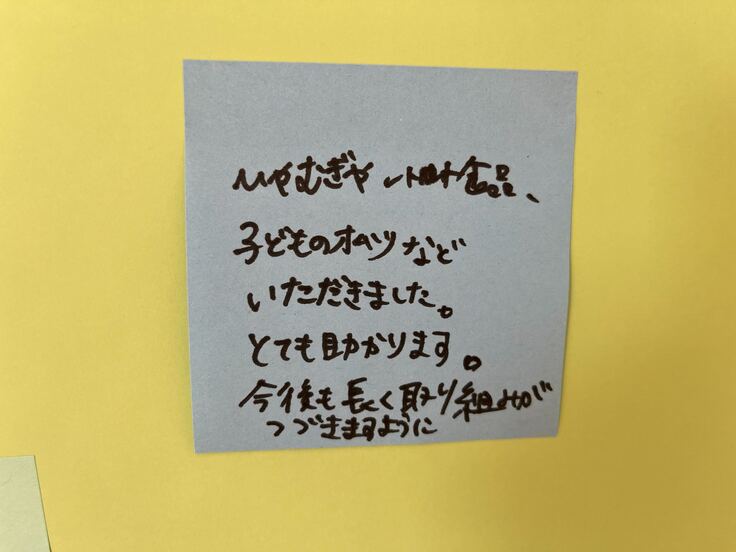 ひやむぎや レトルト食品、
子どものオムツなど
いただきました。
とても助かります。
今後も長く取り組みが
つづきますように